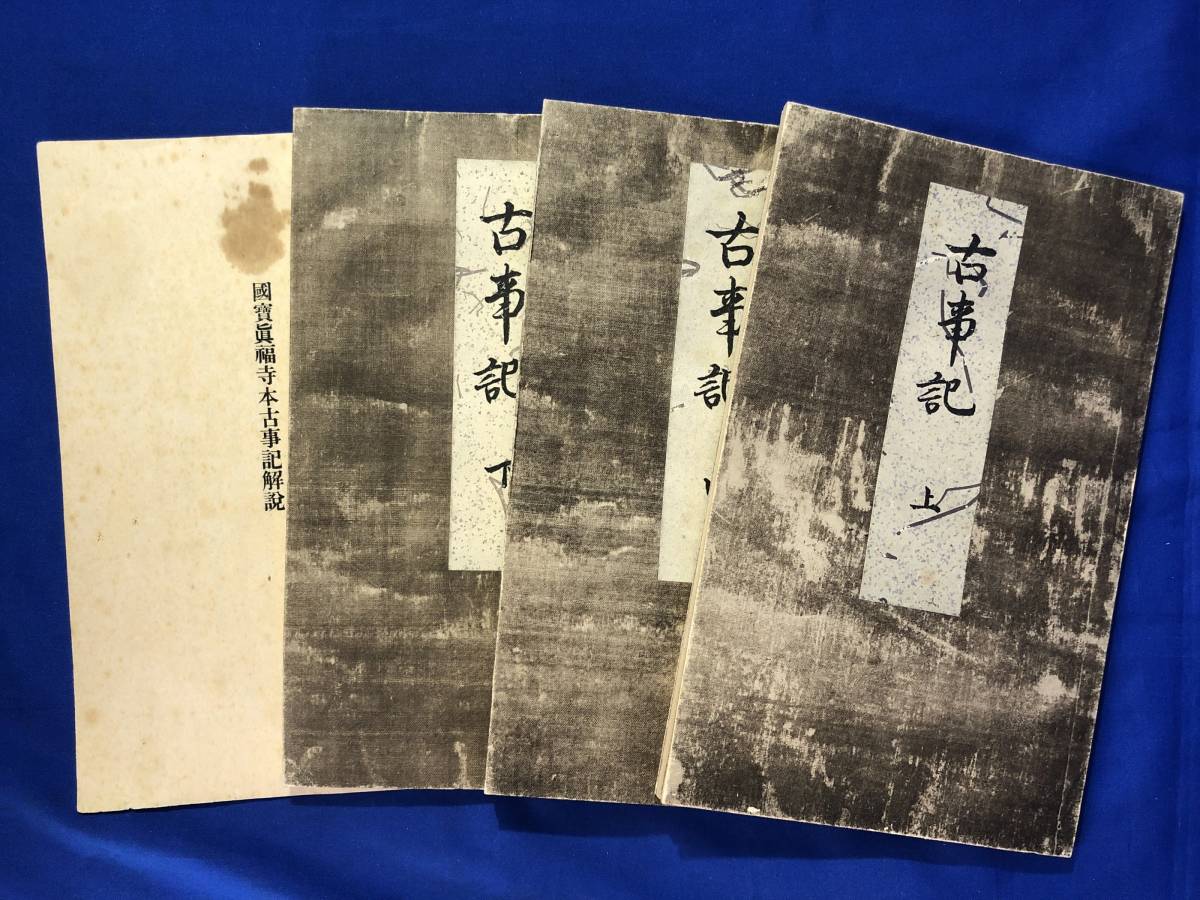 古事記 上
古事記
古事記 下
國寶眞福寺本古事記解說